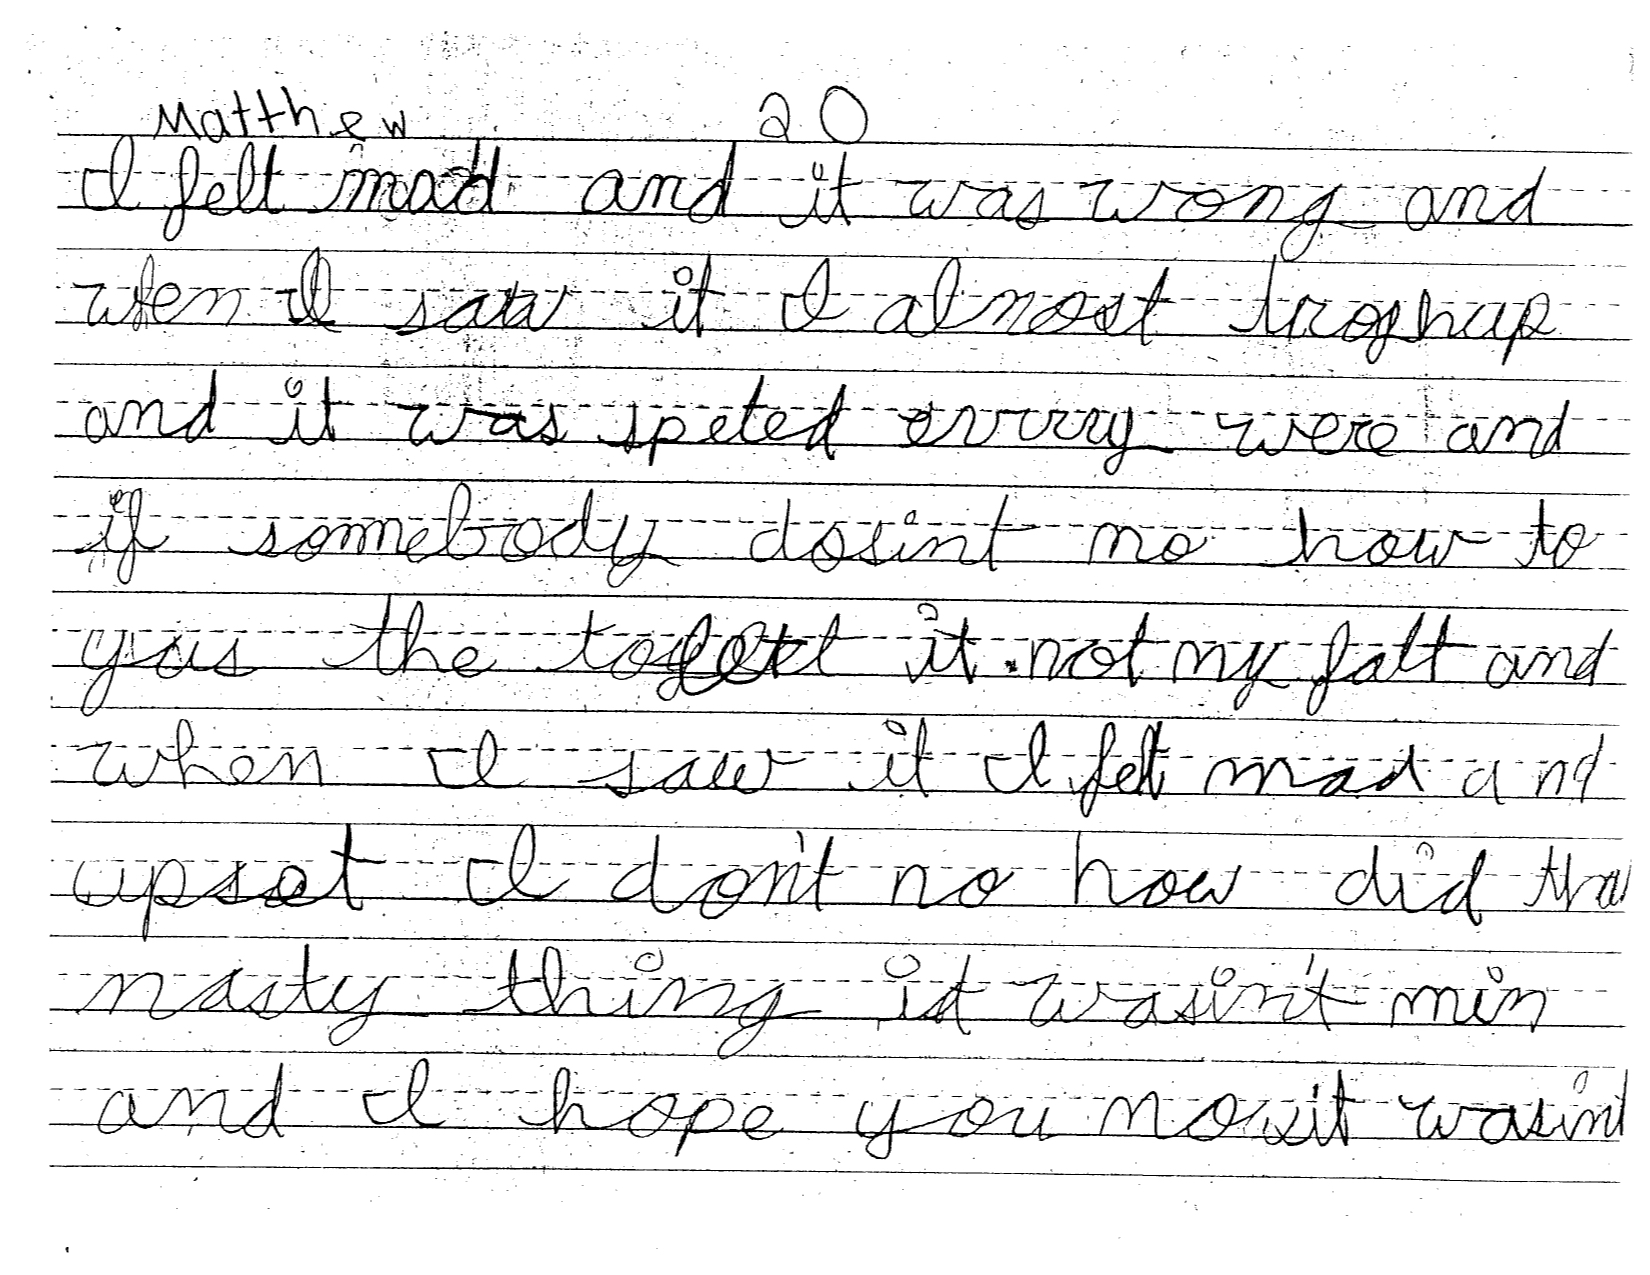 Matthew 20
I felt mad and it was wrong and
when I saw it I almost
and it was speted evrry were and
if somebody dosint no how to
yus the it not my falt and
when I saw it I felt mad and
upset I don't no how did that
nasty thing it wasin't min
and I hope you no it wasint